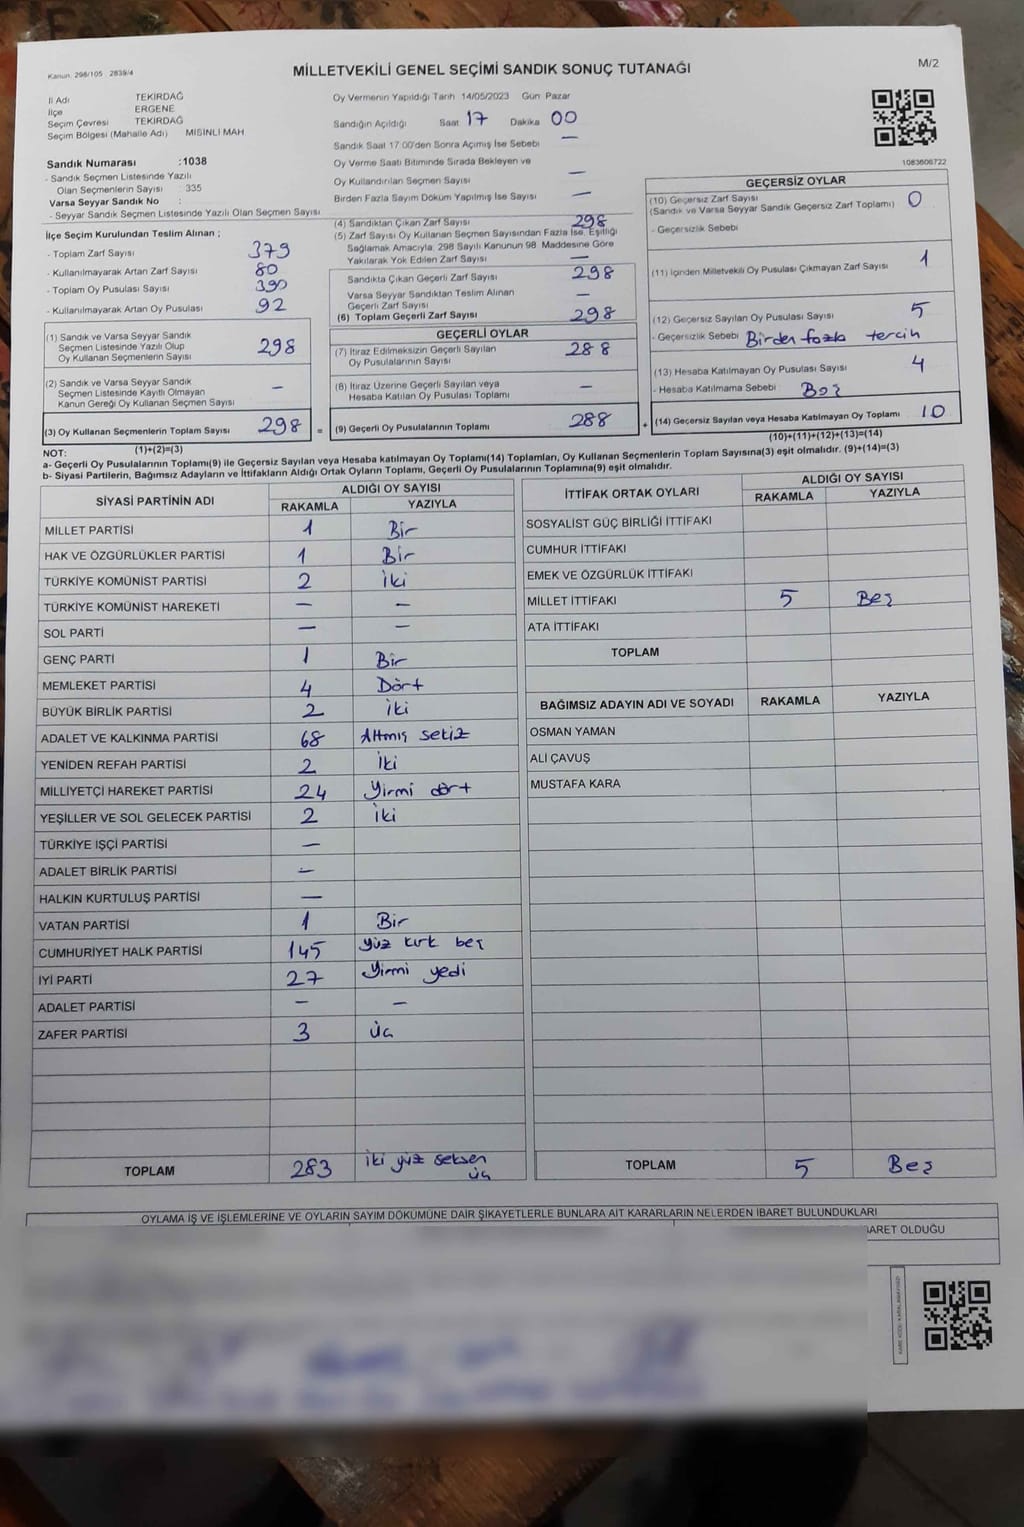 Kanun: 298/105 2839/4
MİLLETVEKİLİ GENEL SEÇİMİ SANDIK SONUÇ TUTANAĞI
M/2
İl Adı TEKİRDAĞ
İlçe ERGENE
Seçim Çevresi TEKİRDAĞ
Seçim Bölgesi (Mahalle Adı) MISINLI MAH
Sandık Numarası :1038
- Sandık Seçmen Listesinde Yazılı
Olan Seçmenlerin Sayısı : 335
Varsa Seyyar Sandık No :
- Seyyar Sandık Seçmen Listesinde Yazılı Olan Seçmen Sayısı
İlçe Seçim Kurulundan Teslim Alınan ;
- Toplam Zarf Sayısı 379
- Kullanılmayarak Artan Zarf Sayısı 80
- Toplam Oy Pusulası Sayısı 390
- Kullanılmayarak Artan Oy Pusulası 92
(1) Sandık ve Varsa Seyyar Sandık
Seçmen Listesinde Yazılı Olup
Oy Kullanan Seçmenlerin Sayısı 298
(2) Sandık ve Varsa Seyyar Sandık
Seçmen Listesinde Kayıtlı Olmayan
Kanun Gereği Oy Kullanan Seçmen Sayısı —
(3) Oy Kullanan Seçmenlerin Toplam Sayısı 298 =
(1)+(2)=(3)
Oy Vermenin Yapıldığı Tarih 14/05/2023 Gün Pazar
Sandığın Açıldığı Saat 17 Dakika 00
Sandık Saat 17.00'den Sonra Açılmış İse Sebebi —
Oy Verme Saati Bitiminde Sırada Bekleyen ve
Oy Kullandırılan Seçmen Sayısı —
Birden Fazla Sayım Döküm Yapılmış İse Sayısı —
(4) Sandıktan Çıkan Zarf Sayısı 298
(5) Zarf Sayısı Oy Kullanan Seçmen Sayısından Fazla İse, Eşitliği
Sağlamak Amacıyla, 298 Sayılı Kanunun 98. Maddesine Göre
Yakılarak Yok Edilen Zarf Sayısı —
Sandıkta Çıkan Geçerli Zarf Sayısı 298
Varsa Seyyar Sandıktan Teslim Alınan
Geçerli Zarf Sayısı —
(6) Toplam Geçerli Zarf Sayısı 298
GEÇERLİ OYLAR
(7) İtiraz Edilmeksizin Geçerli Sayılan
Oy Pusulalarının Sayısı 288
(8) İtiraz Üzerine Geçerli Sayılan veya
Hesaba Katılan Oy Pusulası Toplamı —
(9) Geçerli Oy Pusulalarının Toplamı 288 +
1083606722
GEÇERSİZ OYLAR
(10) Geçersiz Zarf Sayısı
(Sandık ve Varsa Seyyar Sandık Geçersiz Zarf Toplamı) 0
- Geçersizlik Sebebi
(11) İçinden Milletvekili Oy Pusulası Çıkmayan Zarf Sayısı 1
(12) Geçersiz Sayılan Oy Pusulası Sayısı 5
- Geçersizlik Sebebi Birden fazla tercih
(13) Hesaba Katılmayan Oy Pusulası Sayısı 4
- Hesaba Katılmama Sebebi : Boş
(14) Geçersiz Sayılan veya Hesaba Katılmayan Oy Toplamı 10
(10)+(11)+(12)+(13)=(14)
NOT:
a- Geçerli Oy Pusulalarının Toplamı(9) ile Geçersiz Sayılan veya Hesaba katılmayan Oy Toplamı(14) Toplamları, Oy Kullanan Seçmenlerin Toplam Sayısına(3) eşit olmalıdır. (9)+(14)=(3)
b- Siyasi Partilerin, Bağımsız Adayların ve İttifakların Aldığı Ortak Oyların Toplamı, Geçerli Oy Pusulalarının Toplamına(9) eşit olmalıdır.
SİYASİ PARTİNİN ADI
ALDIĞI OY SAYISI
RAKAMLA YAZIYLA
MİLLET PARTİSİ 1 Bir
HAK VE ÖZGÜRLÜKLER PARTİSİ 1 Bir
TÜRKİYE KOMÜNİST PARTİSİ 2 iki
TÜRKİYE KOMÜNİST HAREKETİ — —
SOL PARTİ — —
GENÇ PARTİ 1 Bir
MEMLEKET PARTİSİ 4 Dört
BÜYÜK BİRLİK PARTİSİ 2 iki
ADALET VE KALKINMA PARTİSİ 68 Altmış sekiz
YENİDEN REFAH PARTİSİ 2 iki
MİLLİYETÇİ HAREKET PARTİSİ 24 Yirmi dört
YEŞİLLER VE SOL GELECEK PARTİSİ 2 iki
TÜRKİYE İŞÇİ PARTİSİ —
ADALET BİRLİK PARTİSİ —
HALKIN KURTULUŞ PARTİSİ —
VATAN PARTİSİ 1 Bir
CUMHURİYET HALK PARTİSİ 145 yüz kırk beş
İYİ PARTİ 27 Yirmi yedi
ADALET PARTİSİ — —
ZAFER PARTİSİ 3 üç
TOPLAM 283 iki yüz seksen
üç
İTTİFAK ORTAK OYLARI
ALDIĞI OY SAYISI
RAKAMLA YAZIYLA
SOSYALİST GÜÇ BİRLİĞİ İTTİFAKI
CUMHUR İTTİFAKI
EMEK VE ÖZGÜRLÜK İTTİFAKI
MİLLET İTTİFAKI 5 Beş
ATA İTTİFAKI
TOPLAM
BAĞIMSIZ ADAYIN ADI VE SOYADI RAKAMLA YAZIYLA
OSMAN YAMAN
ALİ ÇAVUŞ
MUSTAFA KARA
TOPLAM 5 Beş
OYLAMA İŞ VE İŞLEMLERİNE VE OYLARIN SAYIM DÖKÜMÜNE DAİR ŞİKAYETLERLE BUNLARA AİT KARARLARIN NELERDEN İBARET BULUNDUKLARI
BARET OLDUĞU